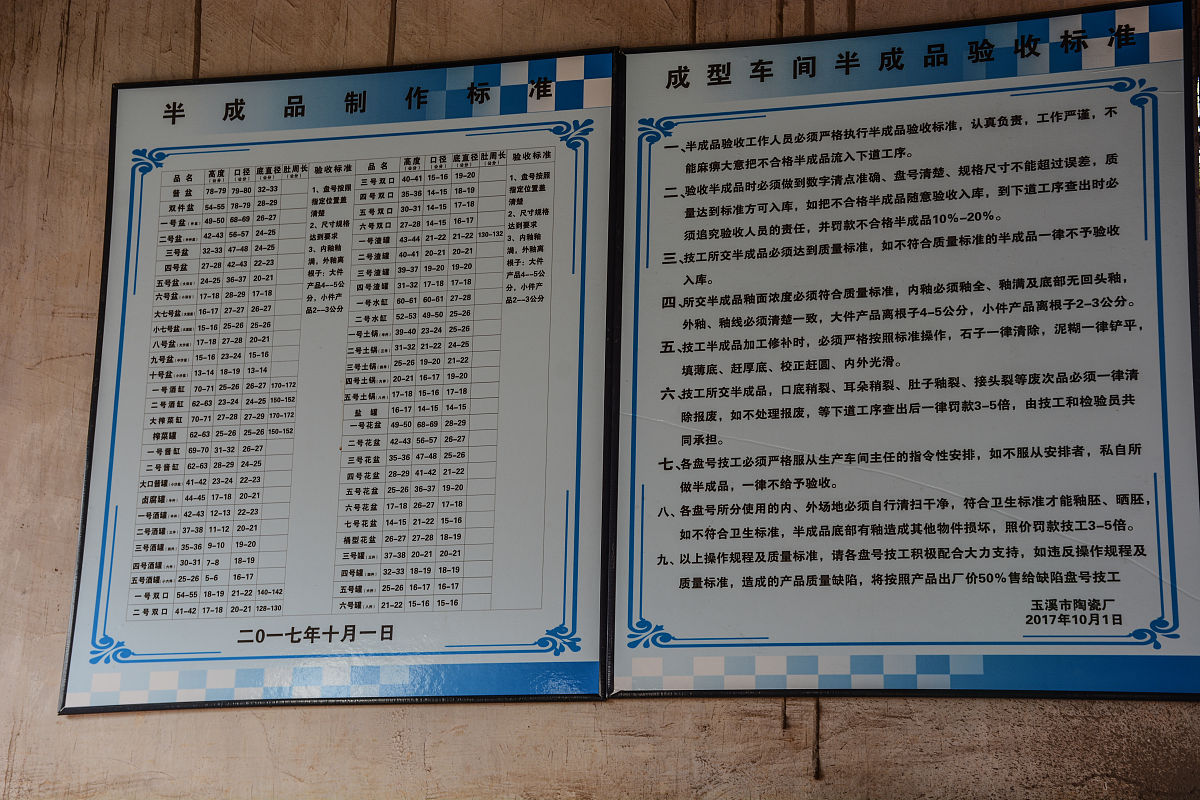 半成品制作标准
品名 高度(公分) 口径(公分) 底直径(公分) 肚周长(公分) 验收标准
酱盆 78-79 79-80 32-33
双件盆 54-55 78-79 28-29
一号盆 49-50 68-69 26-27
二号盆 42-43 56-57 24-25
三号盆 32-33 47-48 24-25
四号盆 27-28 42-43 22-23
五号盆 24-25 36-37 20-21
六号盆 17-18 28-29 17-18
大七号盆 16-17 27-27 26-27
小七号盆 15-16 25-26 25-26
八号盆 17-18 27-28 20-21
九号盆 15-16 23-24 15-16
十号盆 13-14 18-19 13-14
一号酒缸 70-71 25-26 26-27 170-172
二号酒缸 62-63 23-24 24-25 150-152
大榨菜缸 70-71 27-28 27-29 170-172
榨菜罐 62-63 25-26 25-26 150-152
一号酱缸 69-70 31-32 26-27
二号酱缸 62-63 28-29 24-25
大口酱罐 41-42 23-24 22-23
卤腐罐 44-45 17-18 20-21
一号酒罐 42-43 12-13 22-23
二号酒罐 37-38 11-12 20-21
三号酒罐 35-36 9-10 19-20
四号酒罐 30-31 7-8 18-19
五号酒罐 25-26 5-6 16-17
一号双口 54-55 18-19 21-22 140-142
二号双口 41-42 17-18 20-21 128-130
1、盘号按照
指定位置盖
清楚
2、尺寸规格
达到要求
3、内釉釉
满，外釉离
根子：大件
产品4—5公
分，小件产
品2—3公分
品名 高度(公分) 口径(公分) 底直径(公分) 肚周长(公分) 验收标准
三号双口 40-41 15-16 19-20
四号双口 35-36 14-15 18-19
五号双口 30-31 14-15 17-18
六号双口 27-28 14-15 16-17
一号渣罐 43-44 21-22 21-22 130-132
二号渣罐 40-41 20-21 20-21
三号渣罐 39-37 19-20 19-20
四号渣罐 31-32 17-18 17-18
一号水缸 60-61 60-61 27-28
二号水缸 52-53 49-50 25-26
一号土锅 39-40 23-24 25-26
二号土锅 31-32 21-22 24-25
三号土锅 25-26 19-20 21-22
四号土锅 20-21 16-17 19-20
五号土锅 17-18 15-16 17-18
盐罐 16-17 14-15 14-15
一号花盆 49-50 68-69 28-29
二号花盆 42-43 56-57 26-27
三号花盆 35-36 47-48 25-26
四号花盆 28-29 41-42 21-22
五号花盆 25-26 36-37 19-20
六号花盆 17-18 26-27 17-18
七号花盆 14-15 21-22 15-16
桶型花盆 26-27 27-28 18-19
三号罐 37-38 20-21 20-21
四号罐 32-33 18-19 18-19
五号罐 25-26 16-17 16-17
六号罐 21-22 15-16 15-16
1、盘号按照
指定位置盖
清楚
2、尺寸规格
达到要求
3、内釉釉
满，外釉离
根子：大件
产品4—5公
分，小件产
品2—3公分
二0一七年十月一日
成型车间半成品验收标准
一、半成品验收工作人员必须严格执行半成品验收标准，认真负责，工作严谨，不
能麻痹大意把不合格半成品流入下道工序。
二、验收半成品时必须做到数字清点准确、盘号清楚、规格尺寸不能超过误差，质
量达到标准方可入库，如把不合格半成品随意验收入库，到下道工序查出时必
须追究验收人员的责任，并罚款不合格半成品10%-20%。
三、技工所交半成品必须达到质量标准，如不符合质量标准的半成品一律不予验收
入库。
四、所交半成品釉面浓度必须符合质量标准，内釉必须釉全、釉满及底部无回头釉，
外釉、釉线必须清楚一致，大件产品离根子4-5公分，小件产品离根子2-3公分。
五、技工半成品加工修补时，必须严格按照标准操作，石子一律清除，泥糊一律铲平，
填薄底、赶厚底、校正赶圆、内外光滑。
六、技工所交半成品，口底稍裂、耳朵稍裂、肚子釉裂、接头裂等废次品必须一律清
除报废，如不处理报废，等下道工序查出后一律罚款3-5倍，由技工和检验员共
同承担。
七、各盘号技工必须严格服从生产车间主任的指令性安排，如不服从安排者，私自所
做半成品，一律不给予验收。
八、各盘号所分使用的内、外场地必须自行清扫干净，符合卫生标准才能釉胚、晒胚，
如不符合卫生标准，半成品底部有釉造成其他物件损坏，照价罚款技工3-5倍。
九、以上操作规程及质量标准，请各盘号技工积极配合大力支持，如违反操作规程及
质量标准，造成的产品质量缺陷，将按照产品出厂价50%售给缺陷盘号技工
玉溪市陶瓷厂
2017年10月1日